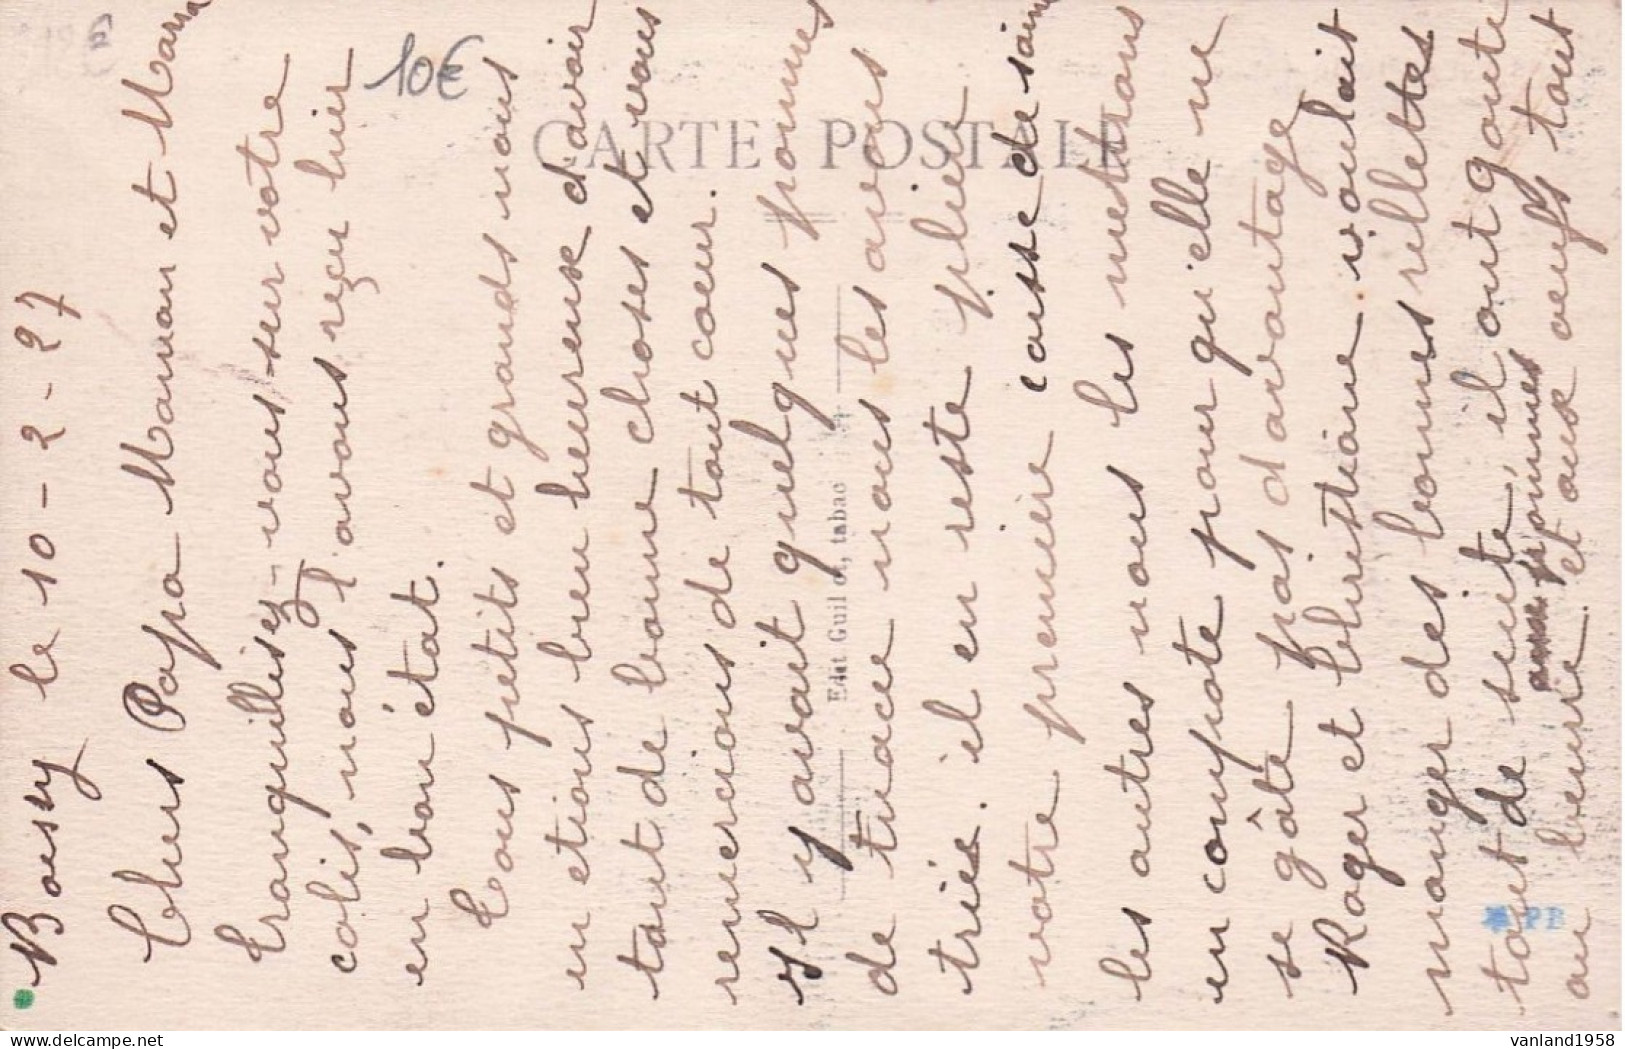 Boissy le 10-2-27
Chers Papa Maman et Marra
tranquillisez-vous sur votre
colis, nous l'avons reçu hier
en bon état.
Tous petits et grands nous
en etions bien heureuse d'avoir
tant de bonne choses et vous
remercions de tout coeur.
Il y avait quelques pommes
de tuacé nous les avons
triés. il en reste pleine
votre première caisse de saine
les autres nous les mettrons
en compote pour qu'elle ne
se gâte pas davantage
Roger et Christiane voulait
manger des bonnes rillettes
tout de suite, il ont gouté
aux pommes et aux oeufs tout
au beurre.
CARTE POSTALE
Edit Guil ot, tabac
10€
12€
PB
delcampe.net
vanland1958